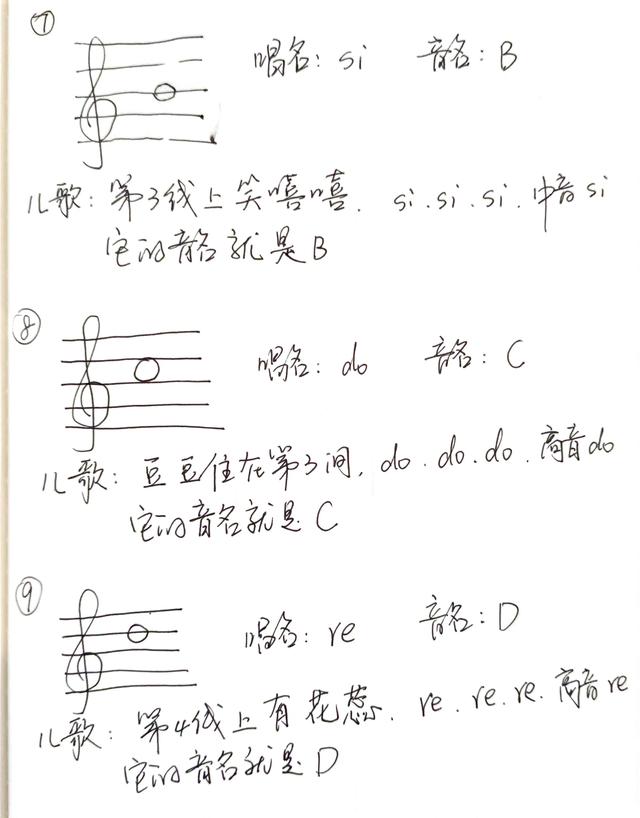 ⑦
唱名: si 音名: B
儿歌: 第3线上笑嘻嘻. si.si.si. 中音si
它的音名就是B
⑧
唱名: do 音名: C
儿歌: 豆豆住在第3间, do.do.do. 高音do
它的音名就是C
⑨
唱名: re 音名: D
儿歌: 第4线上有花蕊. re.re.re. 高音re
它的音名就是D